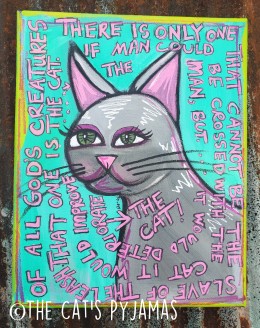 OF ALL GOD'S CREATURES
THERE IS ONLY ONE
THAT CANNOT BE THE
SLAVE OF THE
LEASH THAT ONE IS THE CAT.
IF MAN COULD
BE CROSSED WITH THE
CAT IT WOULD IMPROVE
THE
MAN, BUT
IT WOULD
DETERIORATE
THE
CAT!
©THE CAT'S PYJAMAS